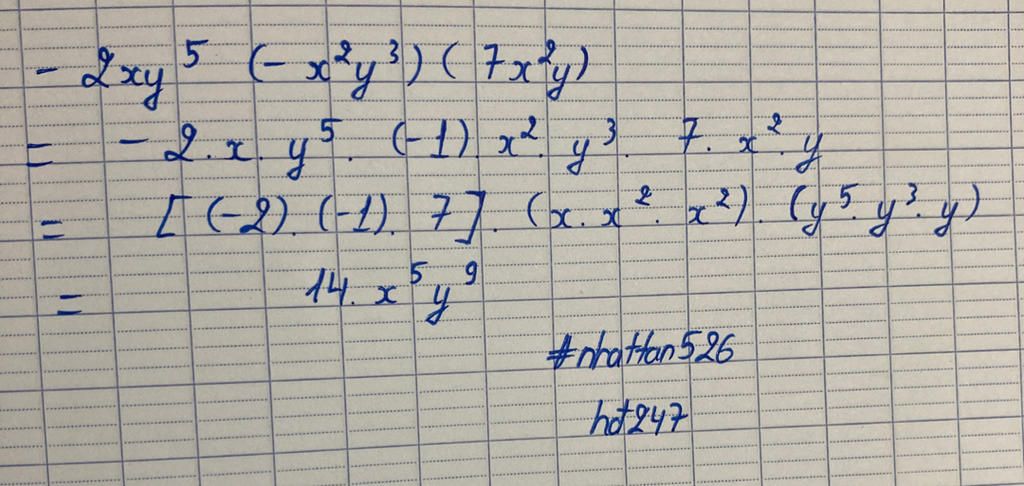 - 2xy⁵ (- x²y³) ( 7x²y)
= - 2. x. y⁵. (-1). x². y³. 7. x². y
= [ (-2). (-1). 7]. (x. x². x²). (y⁵. y³. y)
= 14. x⁵y⁹
#nhattan526
hdt247